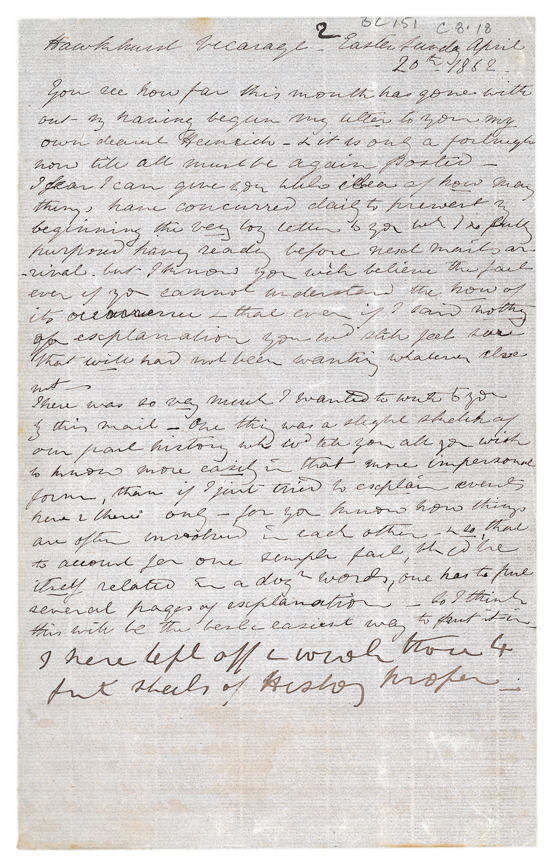 2 BC 151 C 8.18
Hawkhurst Vicarage - Easter Sunday April
20th 1862.
You see how far this month has gone with
out my having begun my letter to you my
own dearest Heinrich - & it is only a fortnight
now till all must be again posted -
I fear I can give you little idea of how many
things have concurred daily to prevent my
beginning the very long letter to you wh I so fully
purposed having ready before next mails ar
-rival. but I know you will believe the fact
even if you cannot understand the how of
its occurrence - that even if I said nothing
of explanation you wd still feel sure
that will had not been wanting whatever else
not -
There was so very much I wanted to write to you
by this mail - One thing was a slight sketch of
our past history wh wd tell you all you wish
to know more easily in that more impersonal
form, than if I just tried to explain events
here & there only - for you know how things
are often involved in each other - & so, that
to account for one simple fact, wh cd be
itself related in a dozn words, one has to give
several pages of explanation - So I think
this will be the best & easiest way to put it in -
I here left off & wrote those 4
first sheets of History proper -